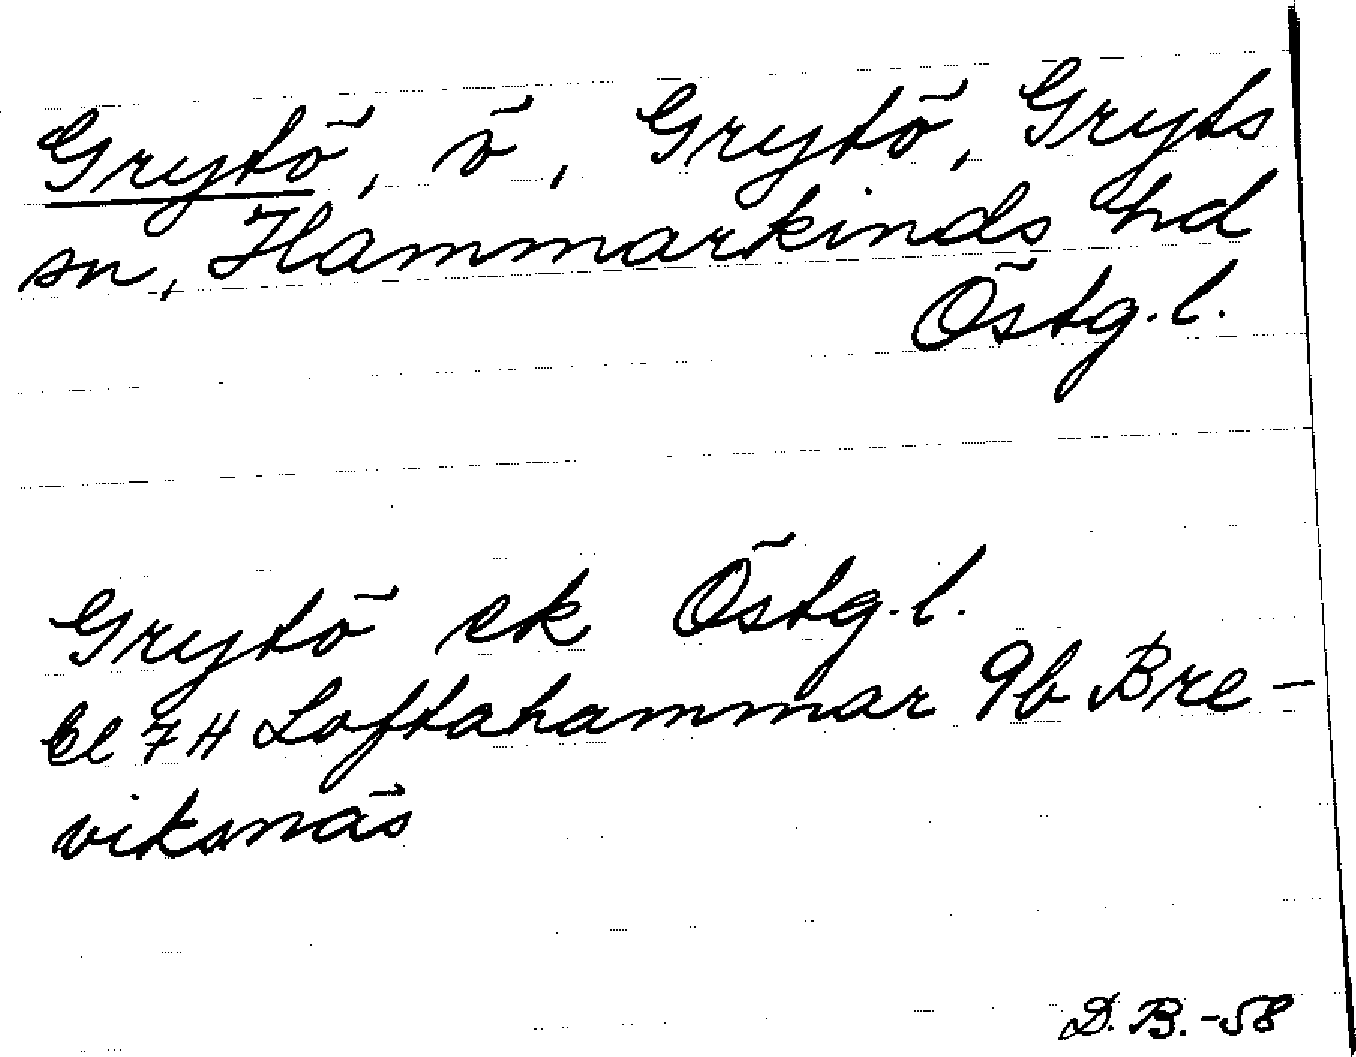 Grytö, ö, Grytö, Gryts
sn, Hammarkinds hd
Östg. l.
Grytö ek Östg. l.
bl 7H Loftahammar 9b Bre-
viksnäs
D. B. -58